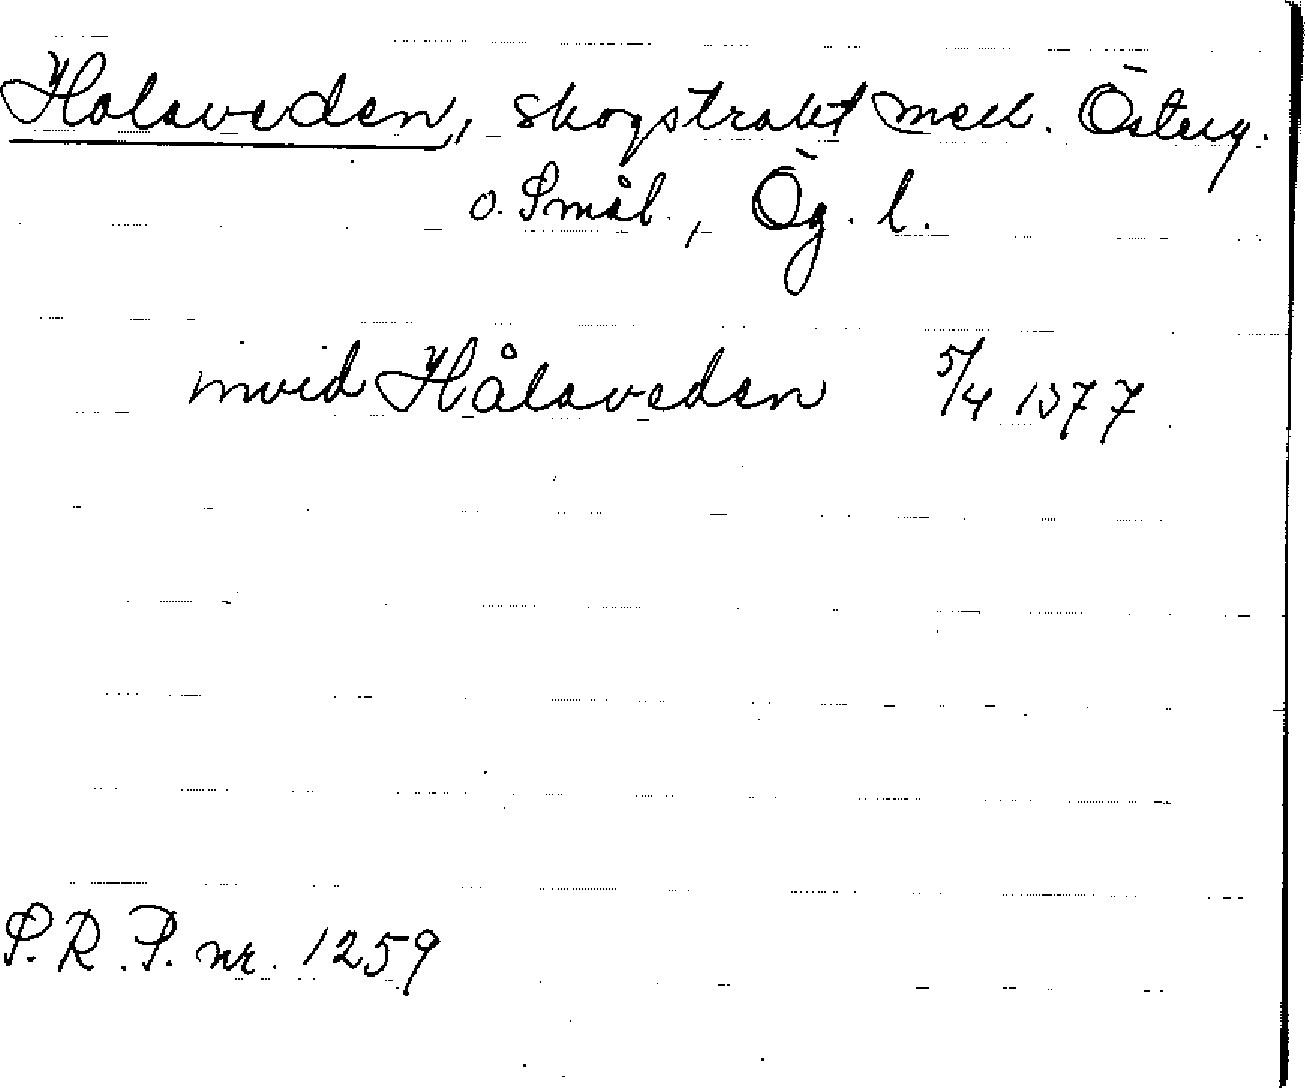 Holaveden, skogstrakt mell. Österg.
o. Smål., Ög. l.
invid Hålaveden 5/4 1377
S.R.P. nr. 1259